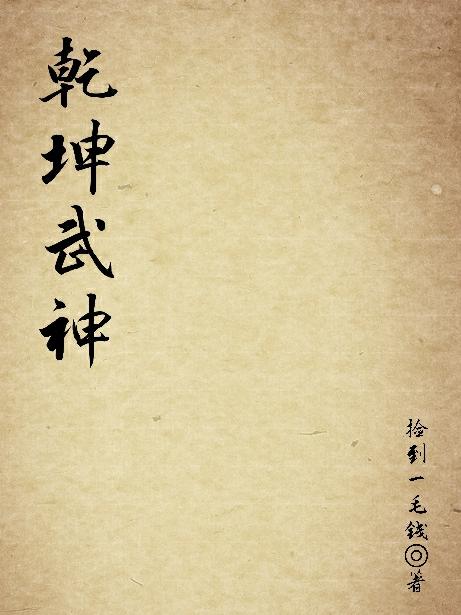 乾坤武神
捡到一毛錢◎著